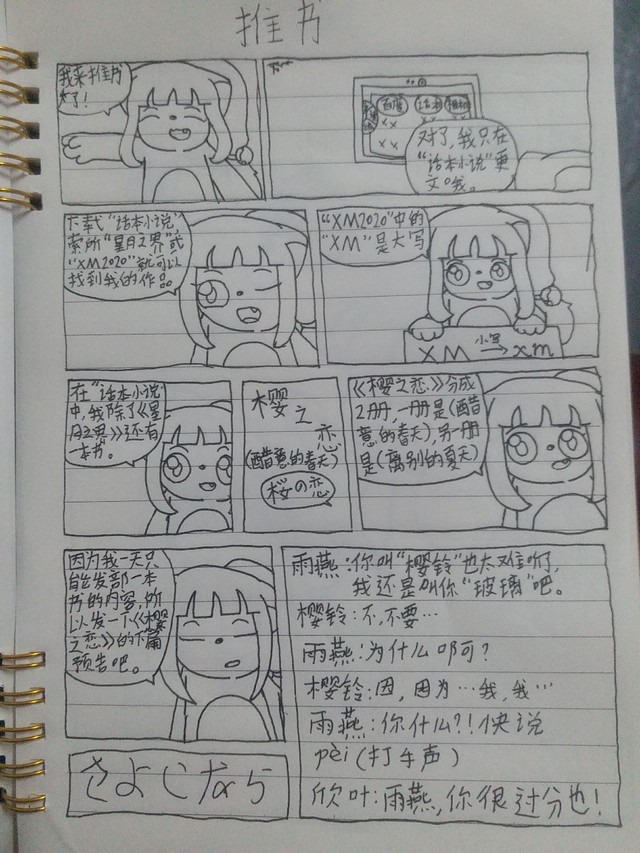 推书
我来推书
了!
百度
话本
××
××
××
对了,我只在
“话本小说”更
文哦。
下载“话本小说”
索所“星月之界”或
“XM2020”就可以
找到我的作品
“XM2020”中的
“XM”是大写
小写
XM → xm
在“话本小说”
中,我除了《星
月之界》还有
一本书。
樱之
恋
(醋意的春天)
桜の恋
《樱之恋》分成
2册,一册是(醋
意的春天),另一册
是(离别的夏天)
因为我一天只
能发部一本
书的内容,所
以发一个《樱
之恋》的下篇
预告吧。
雨燕:你叫“樱铃”也太难听了,
我还是叫你“玻璃”吧。
樱铃:不,不要…
雨燕:为什么叩可?
樱铃:因,因为…我,我…
雨燕:你什么?!快说
pèi(打手声)
欣叶:雨燕,你很过分也!
さよじなら